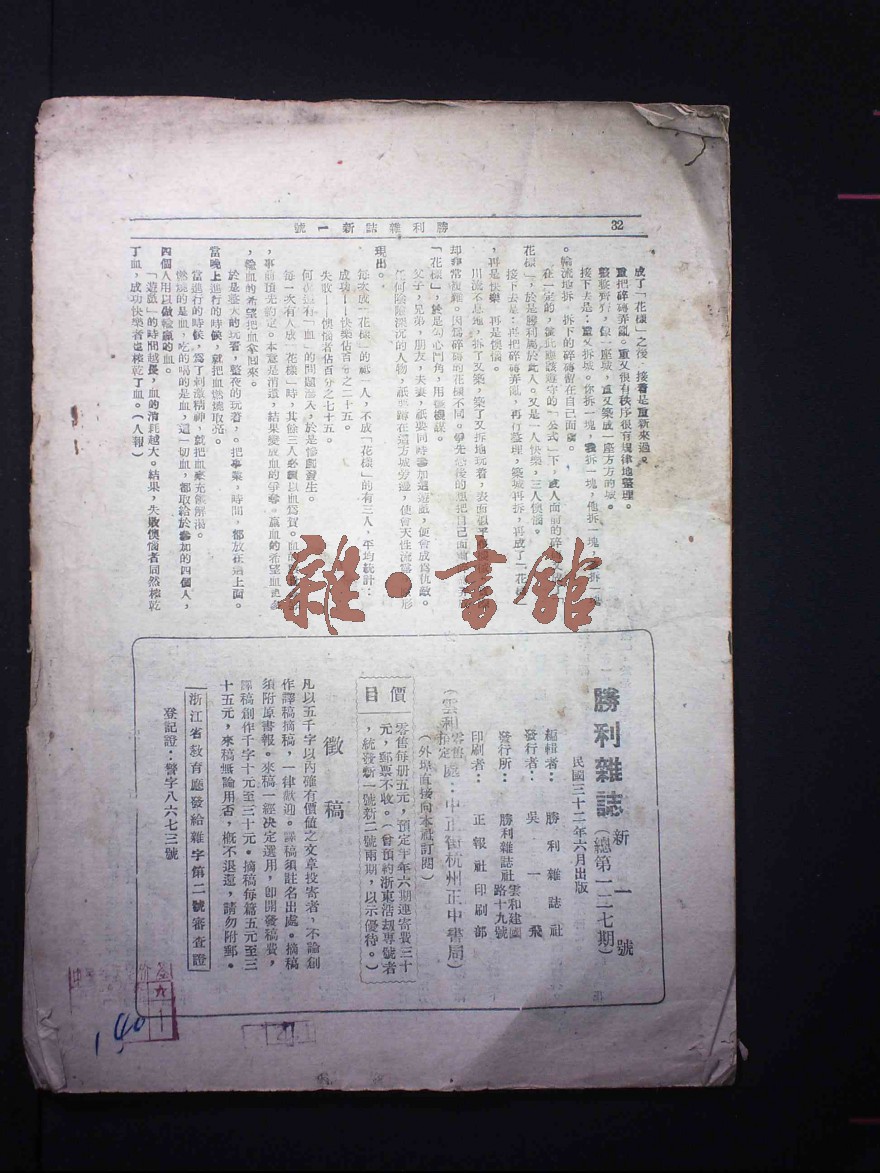 32
勝利雜誌新一號
成了「花樣」之後，接着是重新來過。
重把碎磚弄亂。重又很有秩序很有規律地整理。
整整齊齊，像一座城，重又築成一座方方的城。
接下去是：重又拆城。你拆一塊，我拆一塊，他拆一塊，
。輪流地拆，拆下的碎磚留在自己面前。
在一定的，彼此應該遵守的「公式」下，
花樣」，於是勝利屬於此人。又是一人快樂，三人懊惱。
接下去是：再把碎磚弄亂，再行整理，築城再拆，再成了「花樣」
，再是快樂，再是懊惱。
川流不息地，拆了又築，築了又拆地玩着，表面
却非常複雜。因爲碎磚的花樣不同。爭先恐後的想把自己面
「花樣」，於是勾心鬥角，用盡機謀。
父子，兄弟，朋友，夫妻，祇要同時參加這遊戲，便會成爲仇敵。
任何陰險深沉的人物，祇要蹲在這方城旁邊，便會天性流露，
現出。
每次成「花樣」的祇一人，不成「花樣」的有三人，平均統計：
成功——快樂佔百分之二十五。
失敗——懊惱佔百分之七十五。
何況還有「血」的問題滲入，於是慘劇發生。
每一次有人成「花樣」時，其餘三人必須以血爲賀。
，事前預先約定。本意是消遣，結果變成血的爭奪。贏血的希望血更多
，輸血的希望把血拿回來。
於是整天的玩着，整夜的玩着，。把事業，時間，都放在這上面。
當晚上進行的時候，就把血燃燒取亮。
當進行的時候，爲了刺激精神，就把血來充饑解渴。
燃燒的是血，吃的喝的是血，這一切血，都取給於參加的四個人，
四個人用以做輸贏的血。
「遊戲」的時間越長，血的消耗越大。結果，失敗懊惱者固然榨乾
了血，成功快樂者也榨乾了血。（八報）
勝利雜誌新一號
（總第一二七期）
民國三十二年六月出版
編輯者：勝利雜誌社
發行者：吳一飛
發行所：勝利雜誌社雲和建國路十九號
印刷者：正報社印刷部
（雲和零售預定處：中正街杭州正中書局）
（外埠直接向本社訂閱）
價目
零售每册五元，預定半年六期連寄費三十
元，郵票不收。（曾預約浙東浩刼專號者
，統發新一號新二號兩期，以示優待。）
徵稿
凡以五千字以內確有價值之文章投寄者，不論創
作譯稿摘稿，一律歡迎。譯稿須註名出處。摘稿
須附原書報。來稿一經決定選用，卽開發稿費，
譯稿創作千字十元至三十元。摘稿每篇五元至三
十五元，來稿無論用否，槪不退還，請勿附郵。
浙江省敎育廳發給雜字第二號審查證
登記證：警字八六七三號
雜·書館